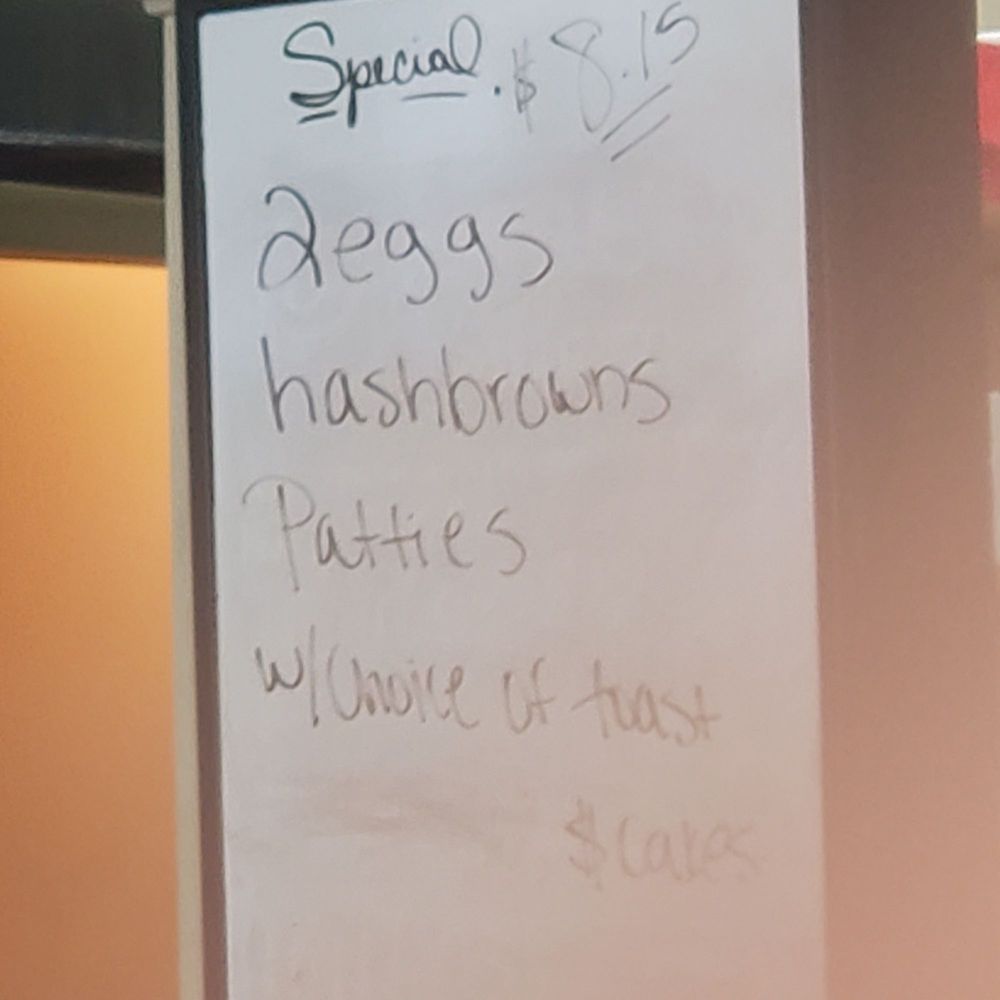 Special. $8.15
2eggs
hashbrowns
Patties
w/Choice of toast
$ cakes